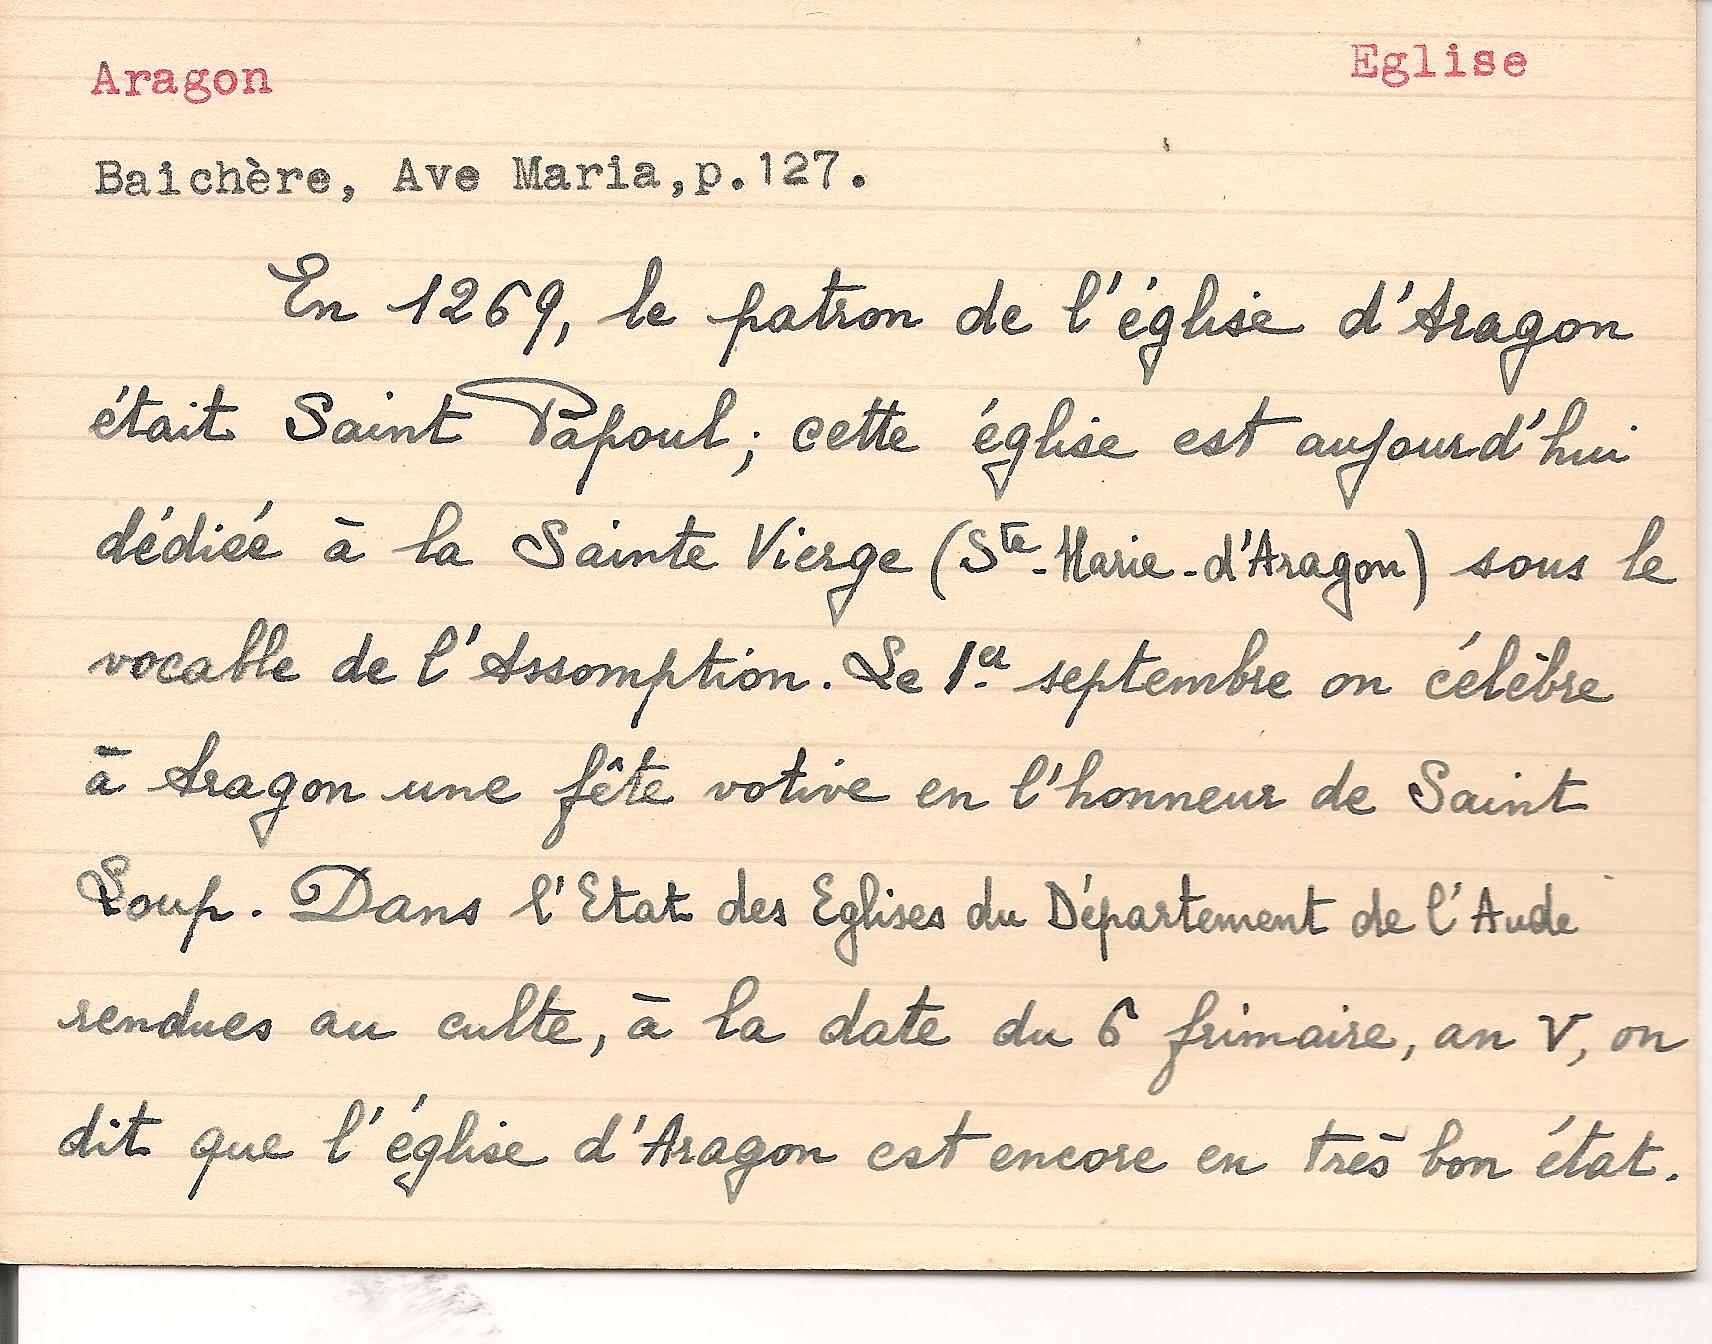 Aragon Eglise
Baichère, Ave Maria,p.127.
En 1269, le patron de l'église d'Aragon
était Saint Papoul ; cette église est aujourd'hui
dédiée à la Sainte Vierge (Ste-Marie-d'Aragon) sous le
vocable de l'Assomption. Le 1er septembre on célèbre
à Aragon une fête votive en l'honneur de Saint
Loup. Dans l'Etat des Eglises du Département de l'Aude
rendues au culte, à la date du 6 frimaire, an V, on
dit que l'église d'Aragon est encore en très bon état.